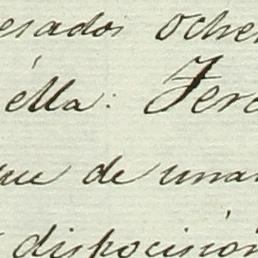 esados ochen
élla: Terc
que de una
disposición